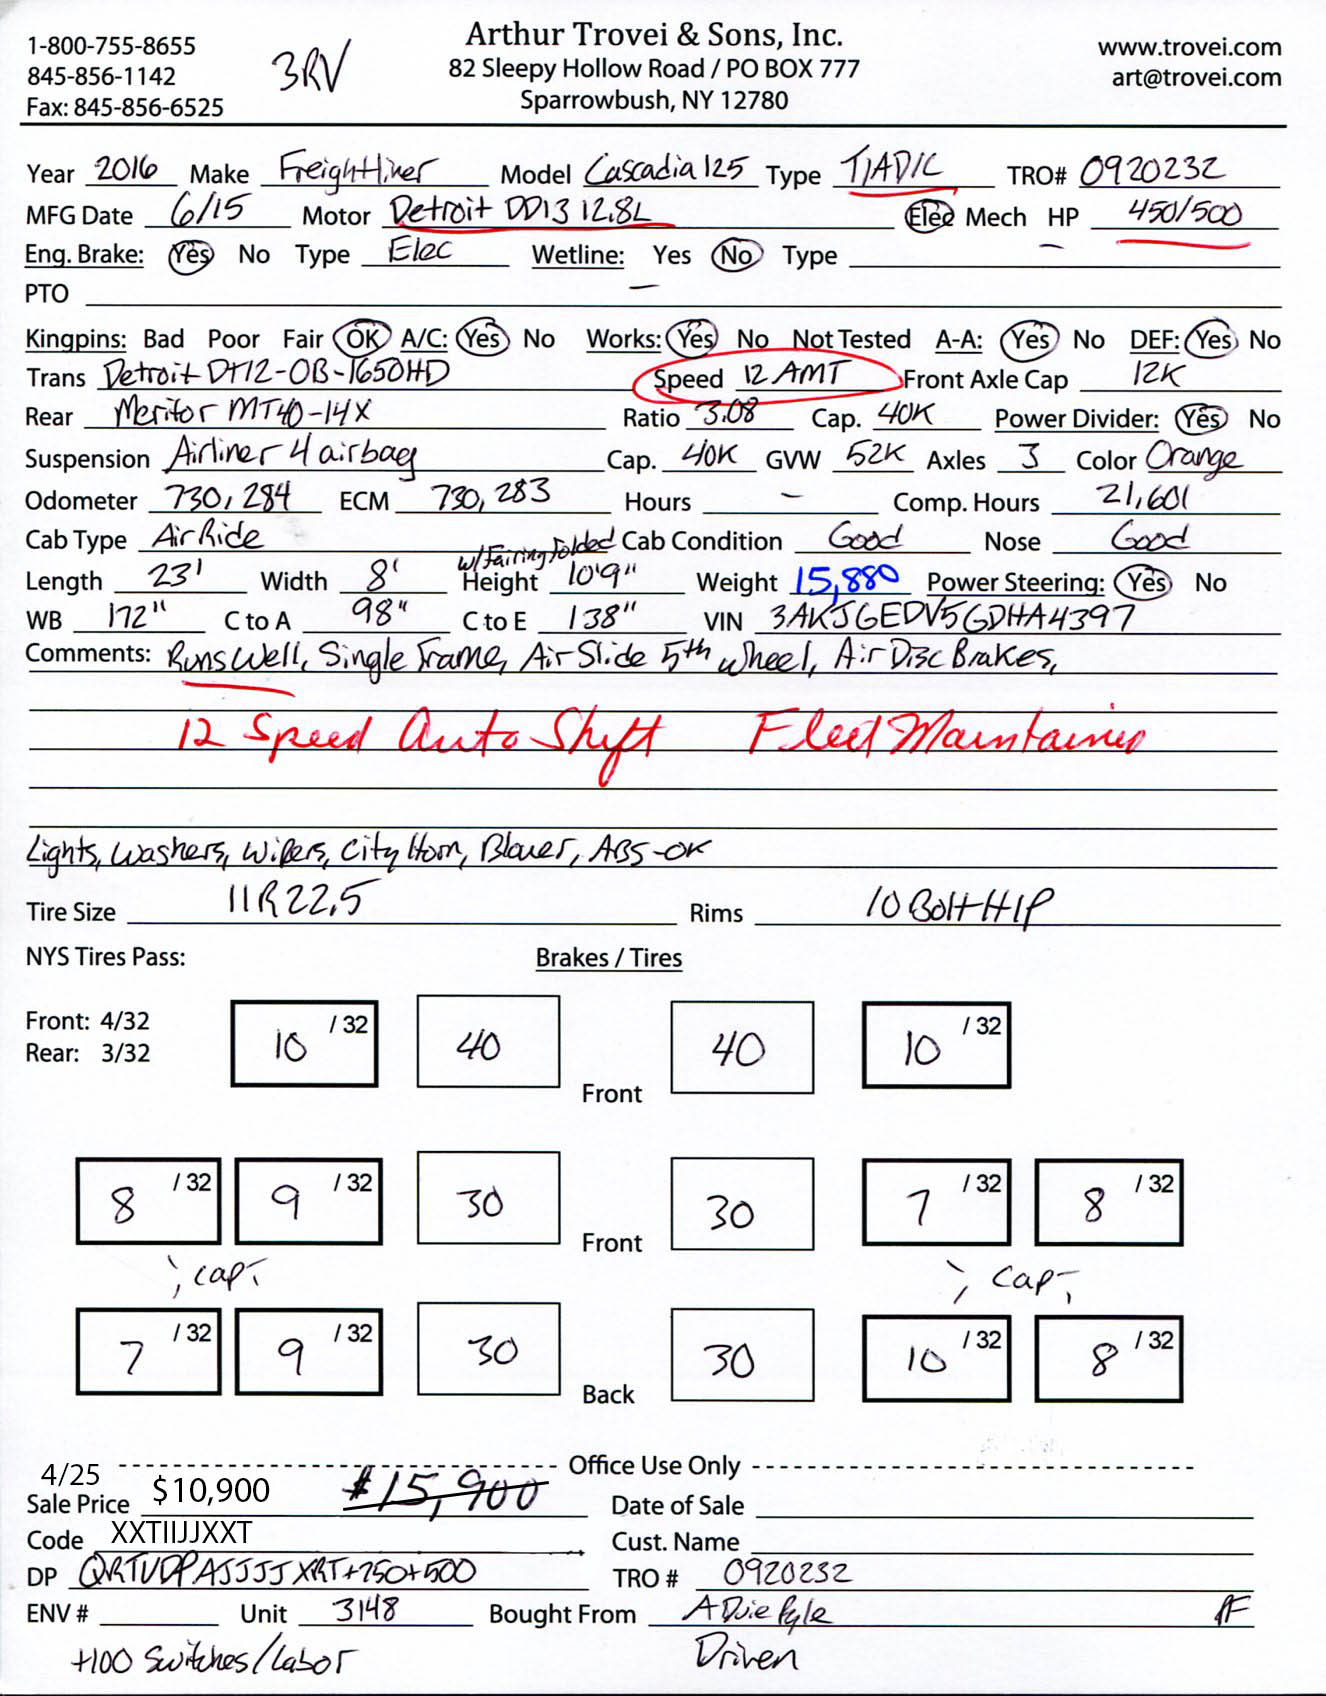 1-800-755-8655
845-856-1142
Fax: 845-856-6525
3RV
Arthur Trovei & Sons, Inc.
82 Sleepy Hollow Road / PO BOX 777
Sparrowbush, NY 12780
www.trovei.com
art@trovei.com
Year 2016 Make Freightliner Model Cascadia 125 Type T/A D/C TRO# 0920232
MFG Date 6/15 Motor Detroit DD13 12.8L Elec Mech HP 450/500
Eng. Brake: Yes No Type Elec Wetline: Yes No Type
PTO
Kingpins: Bad Poor Fair OK A/C: Yes No Works: Yes No Not Tested A-A: Yes No DEF: Yes No
Trans Detroit DT12-OB-1650HD Speed 12 AMT Front Axle Cap 12K
Rear Meritor MT40-14X Ratio 3.08 Cap. 40K Power Divider: Yes No
Suspension Airliner 4 airbag Cap. 40K GVW 52K Axles 3 Color Orange
Odometer 730,284 ECM 730,283 Hours - Comp. Hours 21,601
Cab Type Air Ride Cab Condition Good Nose Good
w/Fairing Folded
Length 23' Width 8' Height 10'9" Weight 15,880 Power Steering: Yes No
WB 172" C to A 98" C to E 138" VIN 3AKJGEDV5GDHA4397
Comments: Runs Well, Single Frame, Air Slide 5th Wheel, Air Disc Brakes,
12 Speed Auto Shift Fleet Maintained
Lights, Washers, Wipers, City Horn, Blower, ABS-OK
Tire Size 11R22.5 Rims 10 Bolt HP
NYS Tires Pass: Brakes / Tires
Front: 4/32
Rear: 3/32
10 /32 40 Front 40 10 /32
8 /32 9 /32 30 Front 30 7 /32 8 /32
cap cap
7 /32 9 /32 30 Back 30 10 /32 8 /32
Office Use Only
4/25
Sale Price $10,900 $15,900 Date of Sale
Code XXTIIJJXXT Cust. Name
DP QRTVDPAJJJJXRT+250+500 TRO # 0920232
ENV # Unit 3148 Bought From
+100 Switches/Labor Driven